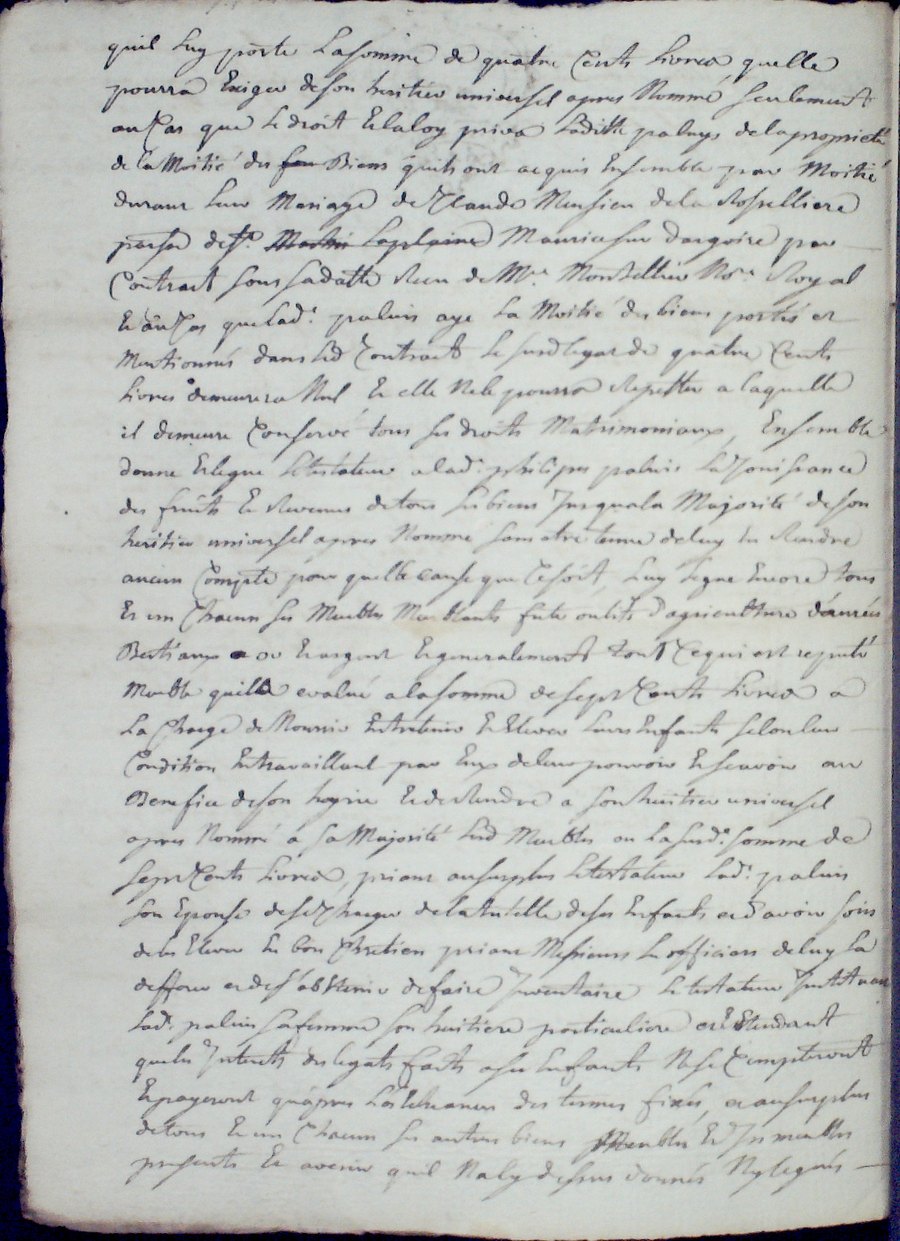 quil luy porte la somme de quatre Cents livres quelle
pourra Exiger de son heritier universel apres Nommé seulement
au Cas que le droit Et la loy priva laditte paluys de la propriete
de la Moitié des Biens quils ont acquis Ensemble par Moitié
durant leur Mariage de Claude Monsieu de la Rosselliere
par Contract sous sa datte Receu de Me. Montellier Nore. Royal
Et au Cas que lad. paluis aye la Moitié des biens portés et
Mentionnés dans led Contract le susd legat de quatre Cents
livres demeurera Nul Et elle Ne le pourra Repetter a laquelle
il demeure Conservé tous ses droits Matrimoniaux, Ensemble
donne Et legue le testateur a lad. paluis la Jouissance
des fruits Et Revenus de tous ses biens Jusqua la Majorité de son
heritier universel apres Nommé sans etre tenue de luy En Rendre
aucun Compte pour quelle cause que Ce soit, luy legue Encore tous
Et un Chacun ses Meubles Meublants outils d'agriculture danrées
Bestiaux or Et argent Et generalement tout Ce qui est reputé
Meuble quil a evalué a la somme de sept Cents livres a
la Charge de Nourrir Entretenir Et Elever leurs Enfants selon leur
Condition En travaillant par Eux de leur pouvoir Et scavoir au
Benefice de son hoirie Et de Rendre a son heritier universel
apres Nommé a sa Majorité lesd Meubles ou la susd. somme de
sept Cents livres, priant au surplus le testateur lad. paluis
son Epouse de se Charger de la tutelle de ses Enfants et d'avoir soin
de les Elever En bon Chretien priant Messieurs les officiers de luy la
defferer et de s'abstenir de faire Inventaire le testateur Instituant
lad. paluis sa femme son heritiere particuliere et Entendant
que les Interets des legats faits a ses Enfants Ne se Compteront
Et payeront qu'apres les Echeances des termes fixés, et au surplus
de tous Et un Chacun ses autres biens Meubles Et Immeubles
presents Et avenir quil Na cy dessus donnés Ny legués